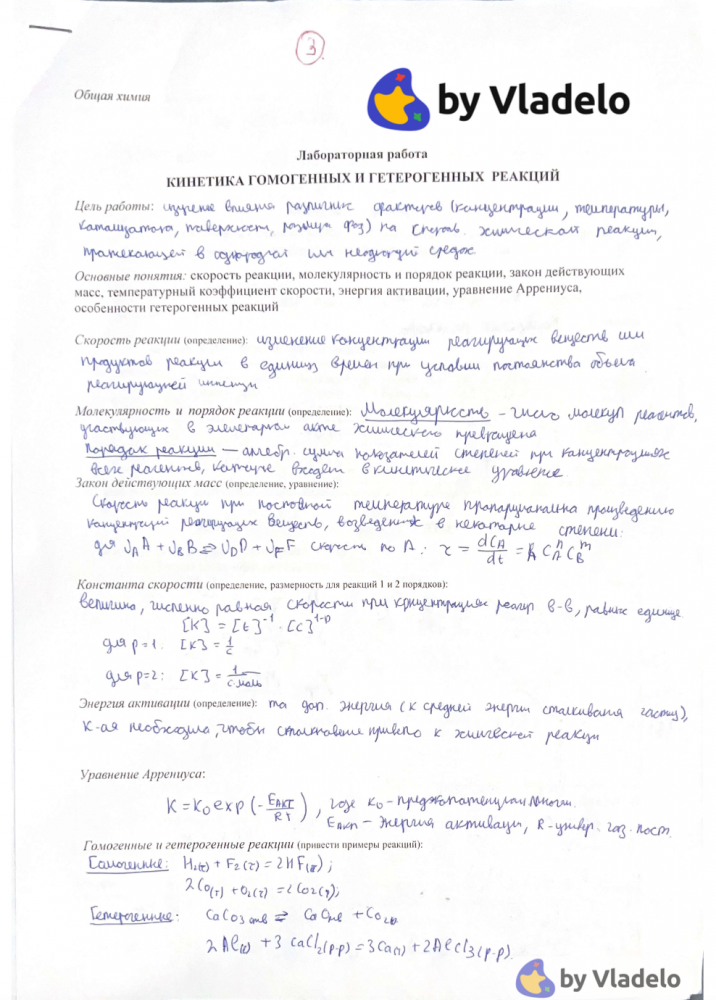 3
Общая химия
by Vladelo
Лабораторная работа
КИНЕТИКА ГОМОГЕННЫХ И ГЕТЕРОГЕННЫХ РЕАКЦИЙ
Цель работы: изучение влияния различных факторов (концентрации, температуры,
катализатора, поверхности, раздела фаз) на скорость химической реакции,
протекающей в однородной или неоднородной средах
Основные понятия: скорость реакции, молекулярность и порядок реакции, закон действующих
масс, температурный коэффициент скорости, энергия активации, уравнение Аррениуса,
особенности гетерогенных реакций
Скорость реакции (определение): изменение концентрации реагирующих веществ или
продуктов реакции в единицу времени при условии постоянства объёма
реагирующей
Молекулярность и порядок реакции (определение): Молекулярность - число молекул реагентов,
участвующих в элементарном акте химического превращения
Порядок реакции — алгебр. сумма показателей степеней при концентрациях
всех реагентов, которые входят в кинетическое уравнение
Закон действующих масс (определение, уравнение):
Скорость реакции при постоянной температуре пропорциональна произведению
концентраций реагирующих веществ, возведенных в некоторые степени:
для νA A + νB B ⇄ νD D + νF F скорость по A: r = dCA/dt = k CA^n CB^m
Константа скорости (определение, размерность для реакций 1 и 2 порядков):
величина, численно равная скорости при концентрациях реагир в-в, равных единице
[K] = [t]^-1 · [c]^1-p
для p=1: [K] = 1/с
для p=2: [K] = 1/с·моль
Энергия активации (определение): та доп. энергия (к средней энергии сталкивания частиц),
к-ая необходима, чтобы столкновение привело к химической реакции
Уравнение Аррениуса:
K = K0 exp (- EАКТ/RT), где K0 - предэкспоненциал множит.
EАКТ - энергия активации, R - универ. газ. пост.
Гомогенные и гетерогенные реакции (привести примеры реакций):
Гомогенные: H2(г) + F2(г) = 2HF(г);
2CO(г) + O2(г) = 2CO2(г);
Гетерогенные: CaCO3 тв ⇄ CaO тв + CO2 г
2Al(т) + 3CaCl2(р-р) = 3Ca(т) + 2AlCl3(р-р).
by Vladelo